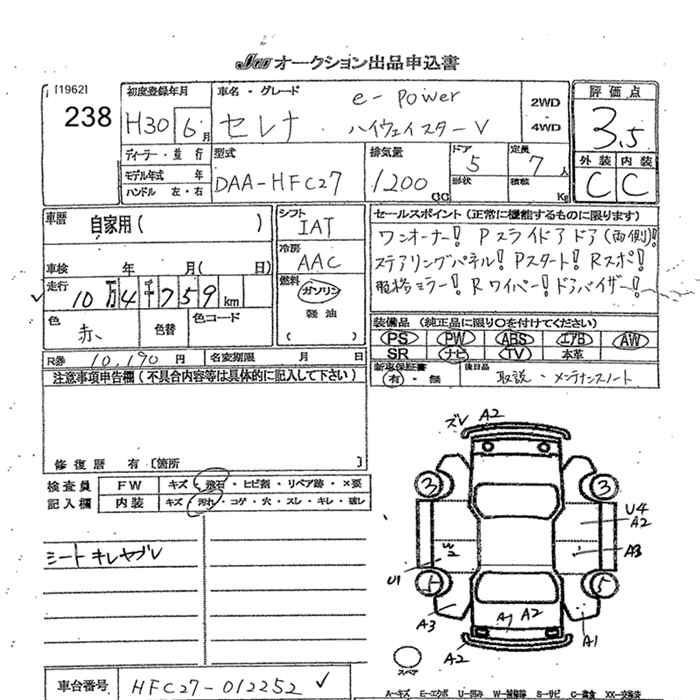 JU オークション出品申込書
[1962]
238
初度登録年月
H30 6月
車名・グレード
e-power
セレナ ハイウェイスターV
2WD
4WD
評価点
3.5
外装 内装
C C
ディーラー・並行
モデル年式 年
ハンドル 左・右
型式
DAA-HFC27
排気量
1200 CC
ドア
5
形状
定員
7人
積載 Kg
車歴
自家用( )
車検 年 月( 日)
走行
10万4千759km
色
赤
色替
色コード
シフト
IAT
冷房
AAC
燃料
ガソリン
軽油
( )
セールスポイント(正常に機能するものに限ります)
ワンオーナー! Pスライドドア(両側)!
ステアリングパネル! Pスタート! Rスポ!
電格ミラー! Rワイパー! ドアバイザー!
装備品(純正品に限り〇を付けてください)
PS PW ABS エアB AW
SR ナビ TV 本革
R券 10,190円
名変期限 月 日
新車保証書
有・無
後日品
取説・メンテナンスノート
注意事項申告欄(不具合内容等は具体的に記入して下さい)
修復歴 有 [箇所 ]
検査員
記入欄
FW キズ・飛石・ヒビ割・リペア跡・×要
内装 キズ・汚れ・コゲ・穴・スレ・キレ・破レ
シートキレヤブレ
ズV A2
3 3
U4
A2
A3
U1
5 5
A3
A1 A2
A1
A2
スペア
車台番号 HFC27-012252 ✓
A-キズ E-エクボ U-凹み W-補修跡 S-サビ C-腐食 XX-交換済